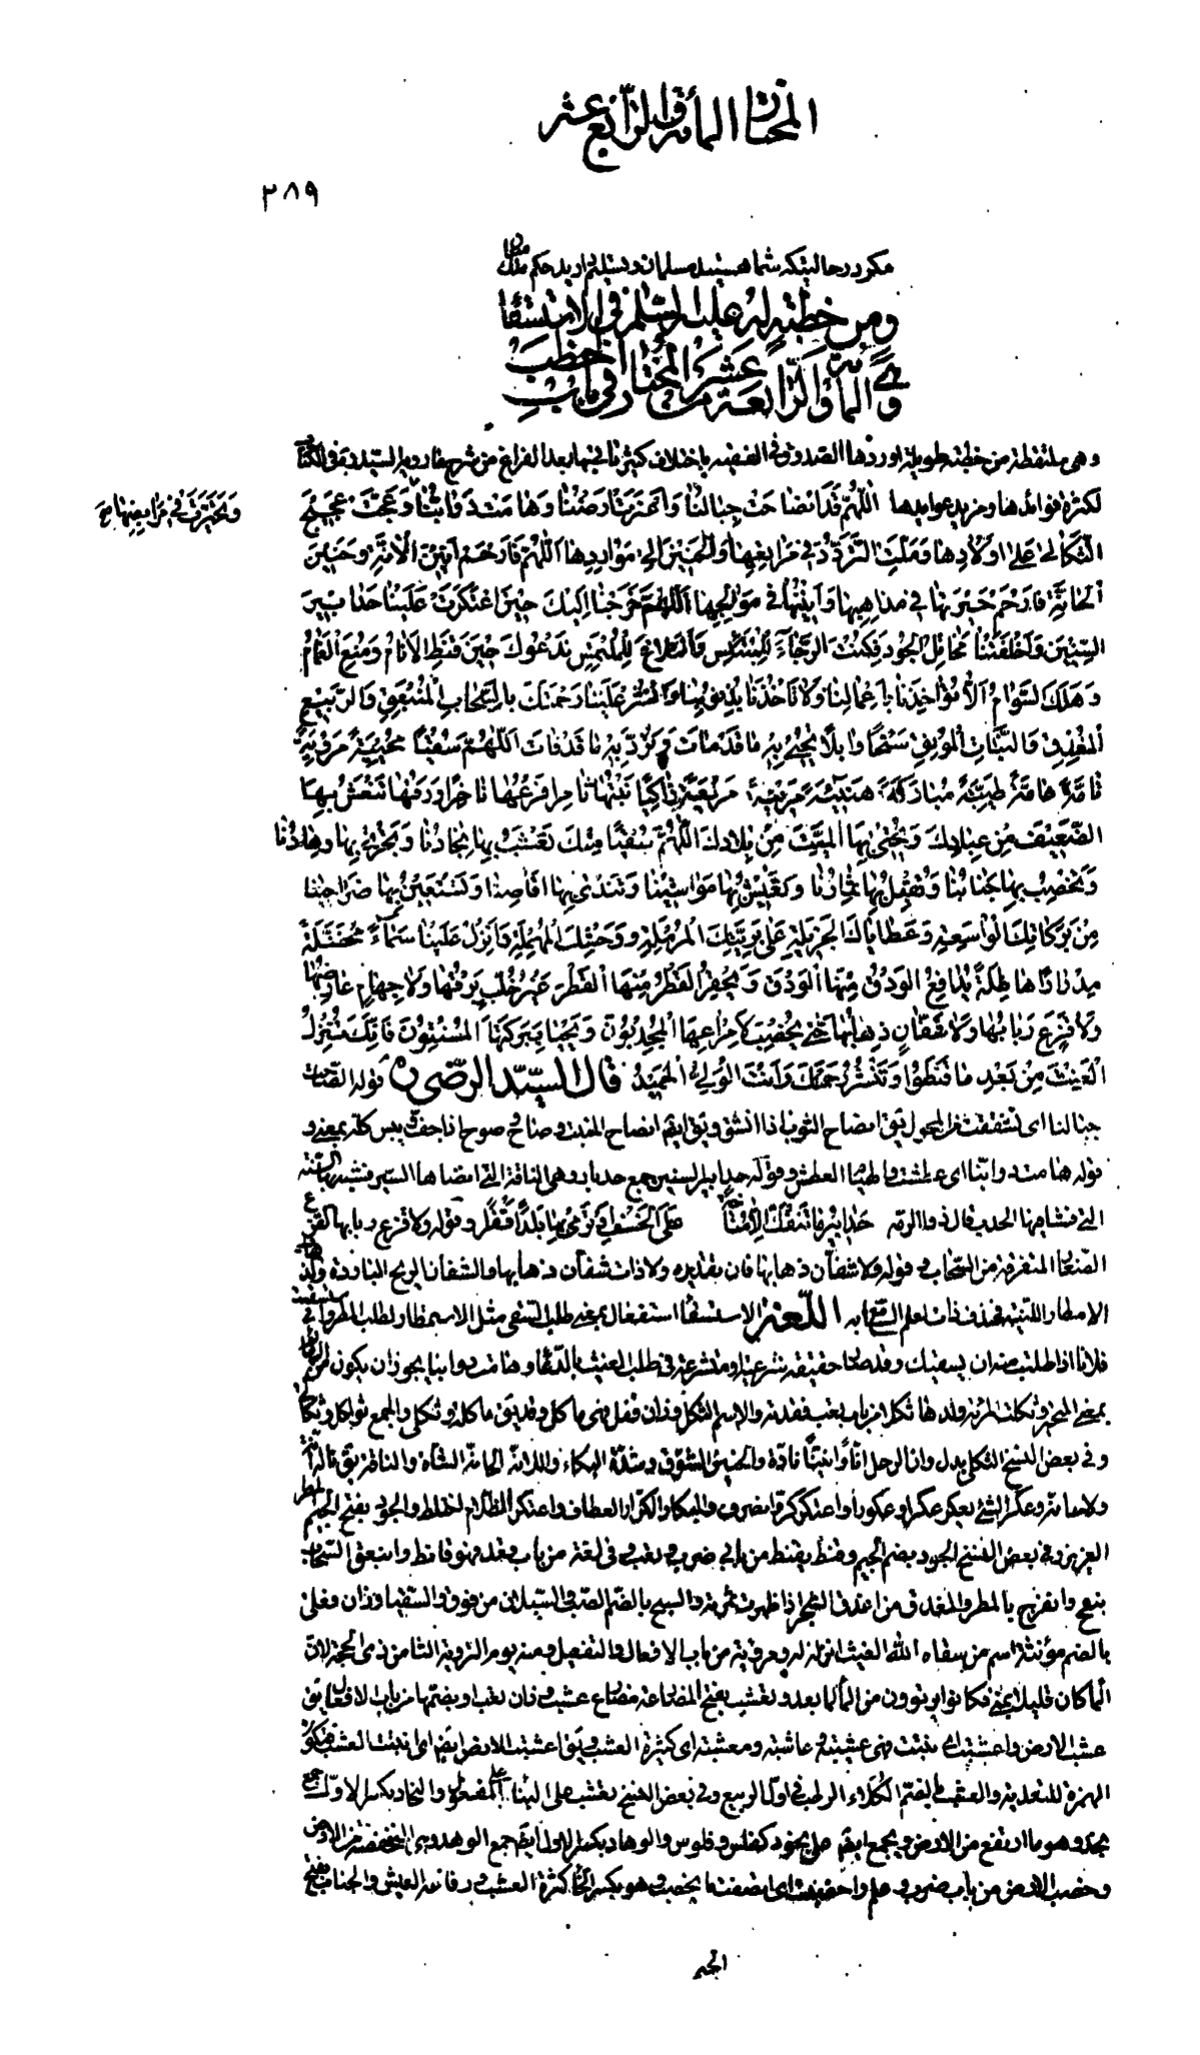 المختار المأة والرابع عشر
٣٨٩
مكر در حالتيكه شما هستيد مسلمان و تسليم از براى حكم ملك
ومن خطبة له عليه السلام في الاستسقاء
وهي المأة والرابعة عشر من المختار في باب الخطب
وهى ملتقطة من خطبة طويلة اوردها الصدوق في الفقيه باختلاف كثير تاتى بها بعد الفراغ من شرح ما رويه السيد في الكتاب
لكثرة فوائدها ومزيد عوايدها اللهم قد انصاحت جبالنا واغبرت ارضنا وهامت دوابنا وعجت عجيج
وتحيرت في مرابضها
الثكالى على اولادها وملت التردد في مراتعها والحنين الى مواردها اللهم فارحم انين الآنة وحنين
الحانة فارحم حيرتها في مذاهبها وانينها في موالجها اللهم خرجنا اليك حين اعتكرت علينا حدابير
السنين واخلفتنا مخائل الجود فكنت الرجاء للمبتئس والبلاغ للملتمس ندعوك حين قنط الانام ومنع الغمام
وهلك السوام الا تؤاخذنا باعمالنا ولا تأخذنا بذنوبنا وانشر علينا رحمتك بالسحاب المنبعق والربيع
المغدق والنبات المونق سحا وابلا تحيى به ما قد مات وترد به ما قد فات اللهم سقيا محيية مروية
تامة عامة طيبة مباركة هنيئة مريئة مريعة زاكيا نبتها ثامرا فرعها ناضرا ورقها تنعش بها
الضعيف من عبادك وتحيى بها الميت من بلادك اللهم سقيا منك تعشب بها نجادنا وتجرى بها وهادنا
وتخصب بها جنابنا وتقبل بها ثمارنا وتعيش بها مواشينا وتندى بها اقاصينا وتستعين بها ضواحينا
من بركاتك الواسعة وعطاياك الجزيلة على بريتك المرملة ووحشك المهملة وانزل علينا سماء مخضلة
مدرارا هاطلة يدافع الودق منها الودق ويحفز القطر منها القطر غير خلب برقها ولا جهام عارضها
ولا قزع ربابها ولا شفان ذهابها حتى يخصب لامراعها المجدبون ويحيا ببركتها المسنتون فانك تنزل
الغيث من بعد ما قنطوا وتنشر رحمتك وانت الولي الحميد قال السيد الرضى ره قوله انصاحت
جبالنا اى تشققت من المحول يق انصاح الثوب اذا انشق ويق ايضا انصاح النبت وصاح وصوح اذا جف ويبس كله بمعنى و
قوله هامت دوابنا اى عطشت والهيام العطش وقوله حدابير السنين جمع حدبار وهى الناقة التى انضاها السير فشبه بها السنة
التى فشا فيها الجدب قال ذو الرمه حدابير ما تنفك الا مناخة على الخسف او نرمى بها بلدا قفرا وقوله ولا قزع ربابها القزع
القطع الصغار المتفرقة من السحاب وقوله ولا شفان ذهابها فان تقديره ولا ذات شفان ذهابها والشفان الريح الباردة والذهاب
الامطار اللينة فحذف ذات لعلم السامع به اللغة الاستسقاء استفعال بمعنى طلب السقى مثل الاستمطار لطلب المطر واستسقيت
فلانا اذا طلبت منه ان يسقيك وقد صار حقيقة شرعية او متشرعة في طلب الغيث بالدعاء وهامت دوابنا يجوز ان يكون من
بمعنى التحير وثكلت المرئة ولدها ثكلا من باب تعب فقدته والاسم الثكل وزان قفل فهى ثاكل وقد يق ثاكلة وثكلى والجمع ثواكل وثكالى
وفى بعض النسخ الثكلى بدل وان الرجل انا وانينا تاوه والحنين الشوق وشدة البكاء والآنة الحانة الشاة والناقة يق ماله آنة
ولا حانة وعكر على الشئ يعكر عكرا وعكورا واعتكر كر وانصرف والعكار الكرار العطاف واعتكر الظلام اختلط والجود بفتح الجيم المطر
الغزير وفى بعض النسخ الجود بضم الجيم وقنط يقنط من بابى ضرب وتعب وفى لغة من باب قعد فهو قانط وانبعق السحاب
بنعج وانفرج بالمطر والمغدق من اغدق الشجر اذا ظهرت ثمرته والسح بالضم الصب والسيلان من فوق والسقيا وزان فعلى
بالضم مؤنثة اسم من سقاه الله الغيث انزله له ومروية من باب الافعال والتفعيل ومنه يوم التروية الثامن ذى الحجة لان
الماء كان قليلا بمنى فكانوا يرتوون من الماء لما بعد وتعشب بفتح المضارعة مضارع عشب وزان تعب او بضمها من باب الافعال يق
عشب الارض واعشبت اى نبتت فهى عشبة وعاشبة ومعشبة اى كثيرة العشب ويق اعشبت الارض ايضا اى انبتت العشب فتكون
الهمزة للتعدية والعشب بالضم الكلاء الرطب في اول الربيع وفى بعض النسخ تعشب على البناء للمفعول والنجاد بكسر الاول جمع
نجد وهو ما ارتفع من الارض ويجمع ايضا على نجود كفلس وفلوس والوهاد بكسر الاول ايضا جمع الوهدة وهى المنخفضة من الارض
وخصب الارض من باب ضرب وعلم واخصبت اى اتصفت بالخصب وهو بكسر الخاء كثرة العشب ورفاغة العيش والجناب بفتح
الجيم